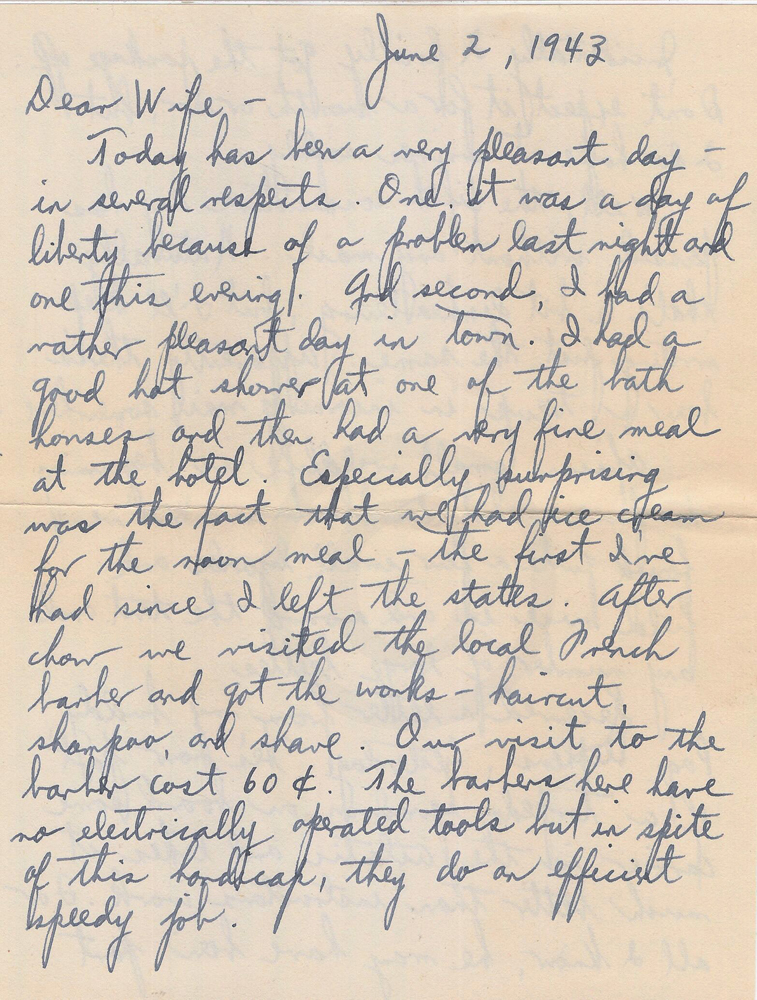 June 2, 1943
Dear Wife -
Today has been a very pleasant day -
in several respects. One. it was a day of
liberty because of a problem last night and
one this evening. And second, I had a
rather pleasant day in town. I had a
good hot shower at one of the bath
houses and then had a very fine meal
at the hotel. Especially surprising
was the fact that we had ice cream
for the noon meal - the first I've
had since I left the states. After
chow we visited the local French
barber and got the works - haircut,
shampoo, and shave. Our visit to the
barber cost 60 ¢. The barbers here have
no electrically operated tools but in spite
of this handicap, they do an efficient
speedy job.